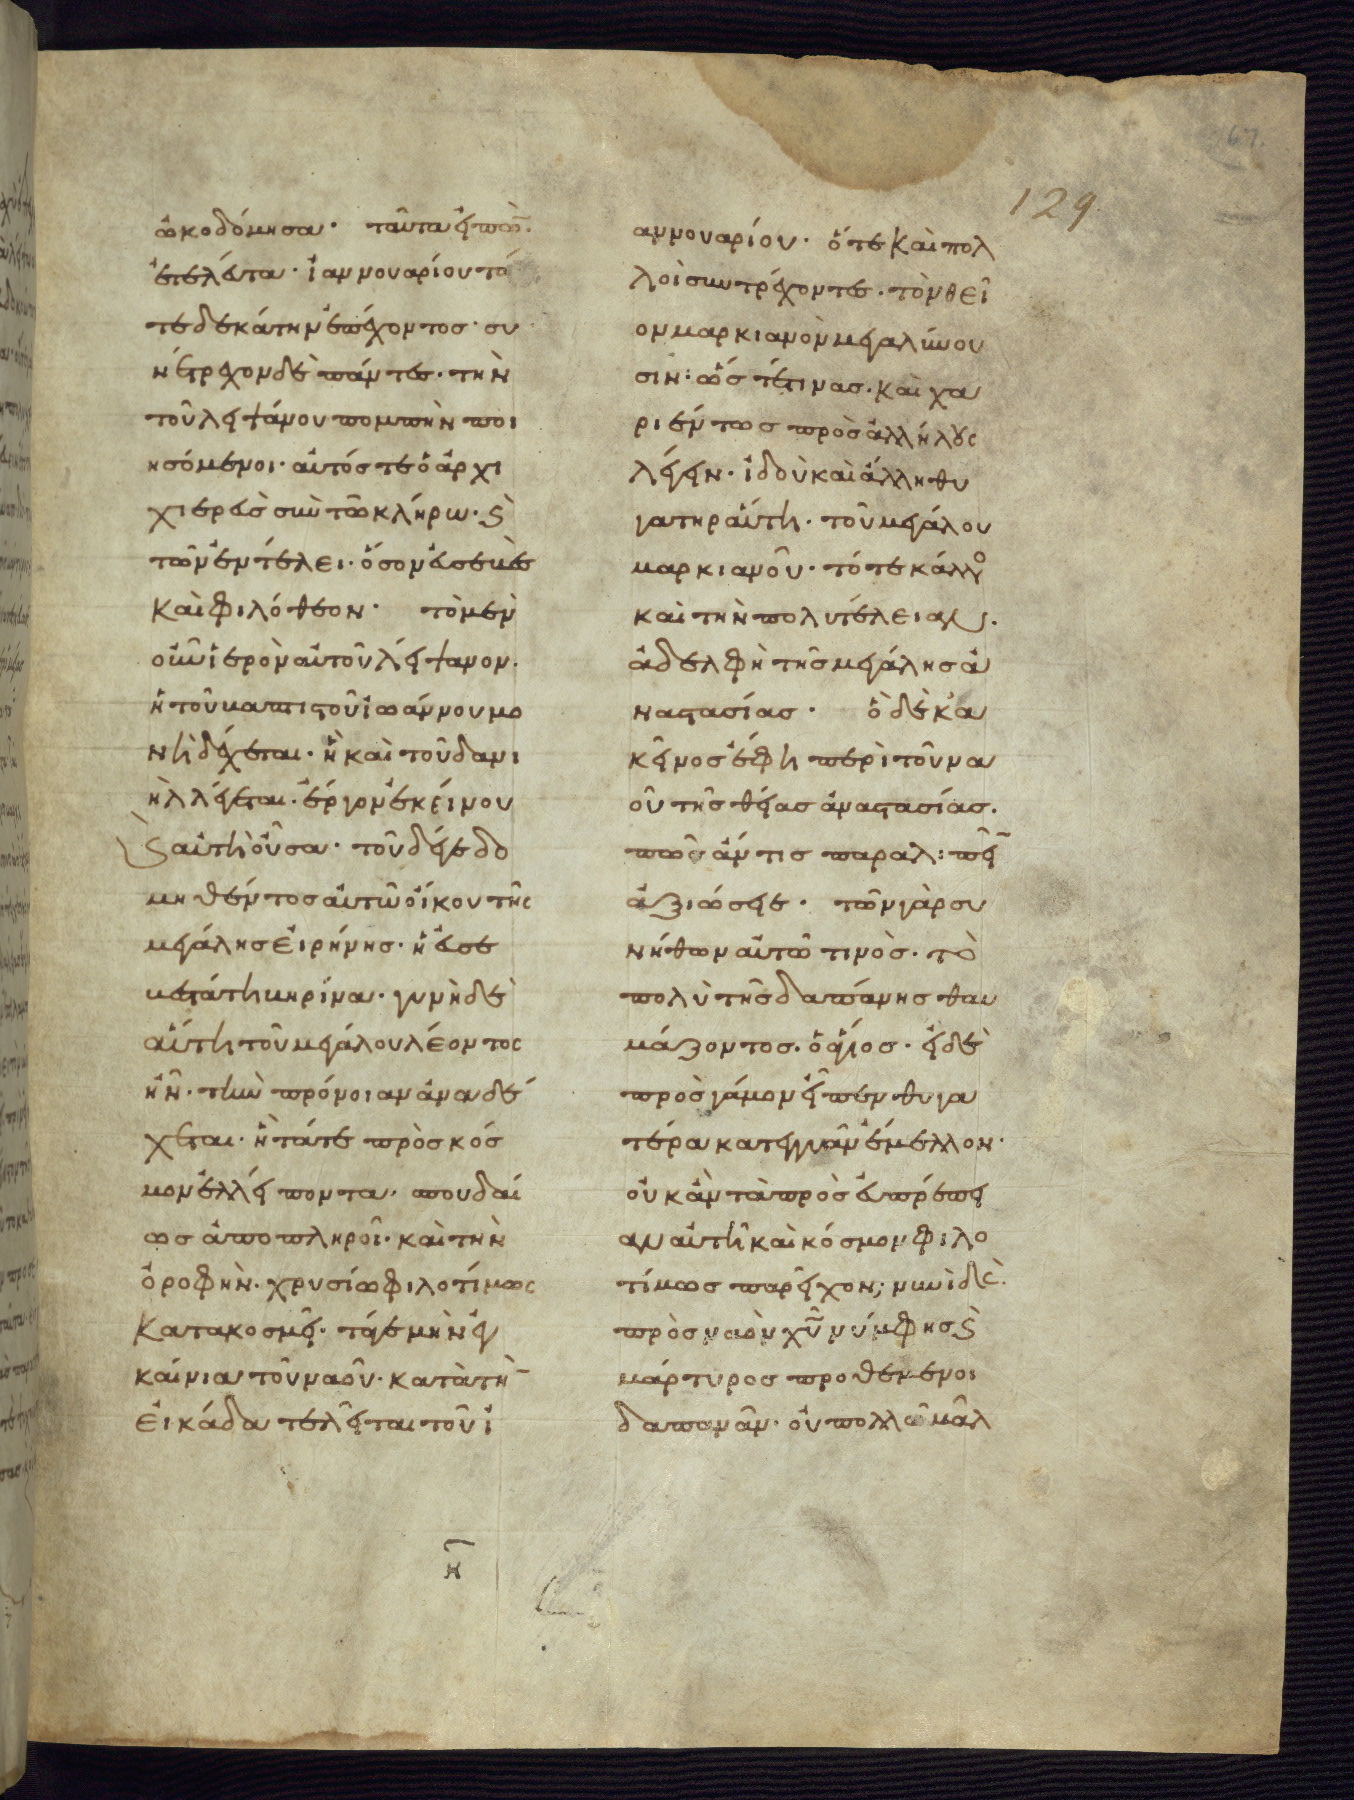 67.
129
ὠκοδόμησα· ταῦτα εἰπὼν.
ἐτελεύτα· ἰαννουαρίου τό
τε δεκάτην ἐπέχοντος· συ
νέτρεχον δὲ πάντες· τὴν
τοῦ λειψάνου πομπὴν ποι
ησόμενοι· αὐτός τε ὁ ἀρχι
χιερεὺς σὺν τῶ κλήρω· ϗ
τῶν ἐν τέλει· ὅσον εὐσεβὲσ
καὶ φιλόθεον· τὸ μὲν
οὖν ἱερὸν αὐτοῦ λείψανον·
ἡ τοῦ βαπτιστοῦ ἰωάννου μο
νὴ δέχεται· ἣ καὶ τοῦ δανι
ὴλ λέγεται· ἔργον ἐκείνου
ϗ αὐτὴ οὖσα· τοῦ δέγε δο
μηθέντος αὐτῶ οἴκου τῆς
μεγάλης εἰρήνης· ἡ εὐσε
βεστάτη κηρίνα· γυνὴ δὲ
αὕτη τοῦ μεγάλου λέοντος
ἦν· τὴν πρόνοιαν ἀναδέ
χεται· ἥ τά τε πρὸς κόσ
μον ἐλλείποντα· σπουδαί
ως ἀποπληροῖ· καὶ τὴν
ὀροφὴν· χρυσίω φιλοτίμως
κατακοσμεῖ· τά γε μὴν ἐγ
καίνια τοῦ ναοῦ· κατὰ τὴν
εἰκάδα τελεῖται τοῦ ἰ
αννουαρίου· ὅτε καὶ πολ
λοὶ συντρέχοντες· τὸν θεῖ
ον μαρκιανὸν μεγαλύνου
σιν: ὡς τέτινας· καὶ χα
ριέντως πρὸς ἀλλήλους
λέγειν· ἰδοὺ καὶ ἄλλη θυ
γάτηρ αὕτη· τοῦ μεγάλου
μαρκιανοῦ· τό τε κάλλος
καὶ τὴν πολυτέλειαν·
ἀδελφὴ τῆς μεγάλης ἀ
ναστασίας· ὁ δὲ κἀ
κεῖνος ἔφη περὶ τοῦ να
οῦ τῆς θείας ἀναστασίας·
πῶς ἄν τις παραλιπεῖν
ἀξιώσειε· τῶν γὰρ συ
νήθων αὐτῶ τινὸς· τὸ
πολὺ τῆς δαπάνης θαυ
μάζοντος· ὁ ἅγιος· εἰ δὲ
πρὸς γάμον εἶπεν θυγα
τέρα κατεγγυᾶν ἔμελλον·
οὐκ ἂν τὰ πρὸς εὐπρέπει
αν αὐτῆ καὶ κόσμον φιλο
τίμως παρεῖχον; νυνὶ δὲ·
πρὸς ναὸν χῦ νύμφης ϗ
μάρτυρος προθέμενοι
δαπανᾶν· οὐ πολλῶ μᾶλ
η